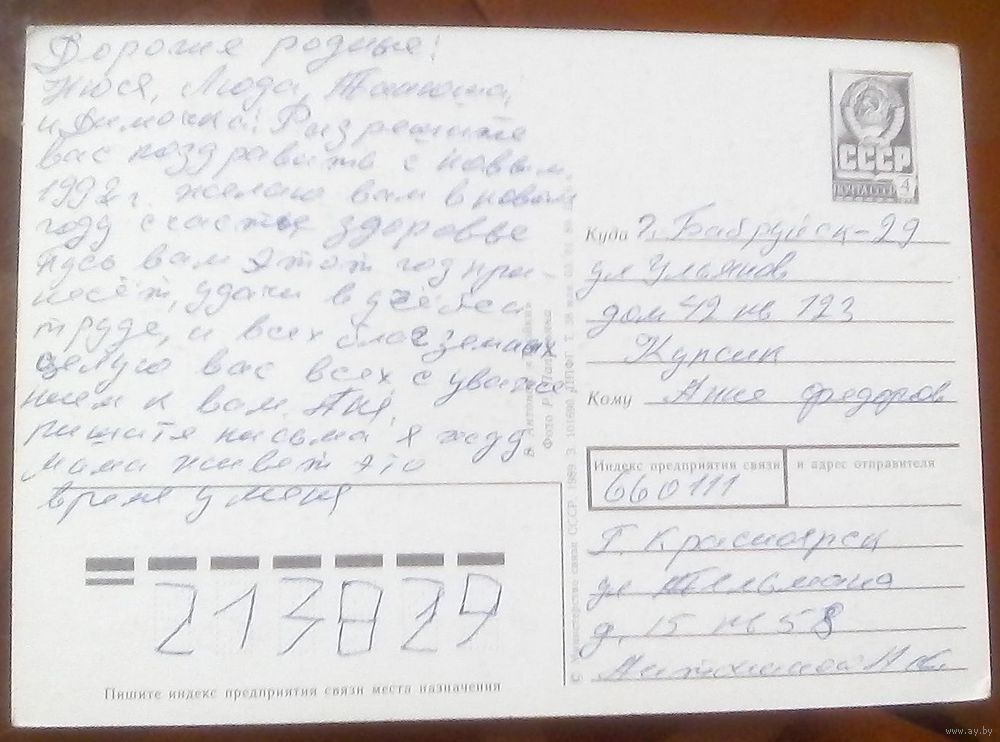 Дорогие родные!
Нюся, Люда, Танюша,
и Димочка! Разрешите
Вас поздравить с новым
1992 г. желаю вам в новом
году счастье здоровье
пусь вам этот год при-
несёт, удачи в учёбе
труде, и всех благ земных
целую вас всех с уваже
нием к вам.
пишите письма я жду
мама живет это
время у меня
СССР
ПОЧТА СССР 4
Куда г. Бабруйск-29
ул Ульянов
дом 42 кв 123
Курсик
Кому Анне Федоров
Индекс предприятия связи и адрес отправителя
660111
г. Красноярск
ул Тельмана
д. 15 кв 58
213829
Пишите индекс предприятия связи места назначения
© Министерство связи СССР. 1989. З. 101690. ППФГ. Т.
Фото Р. Папикьяна
www.ay.by